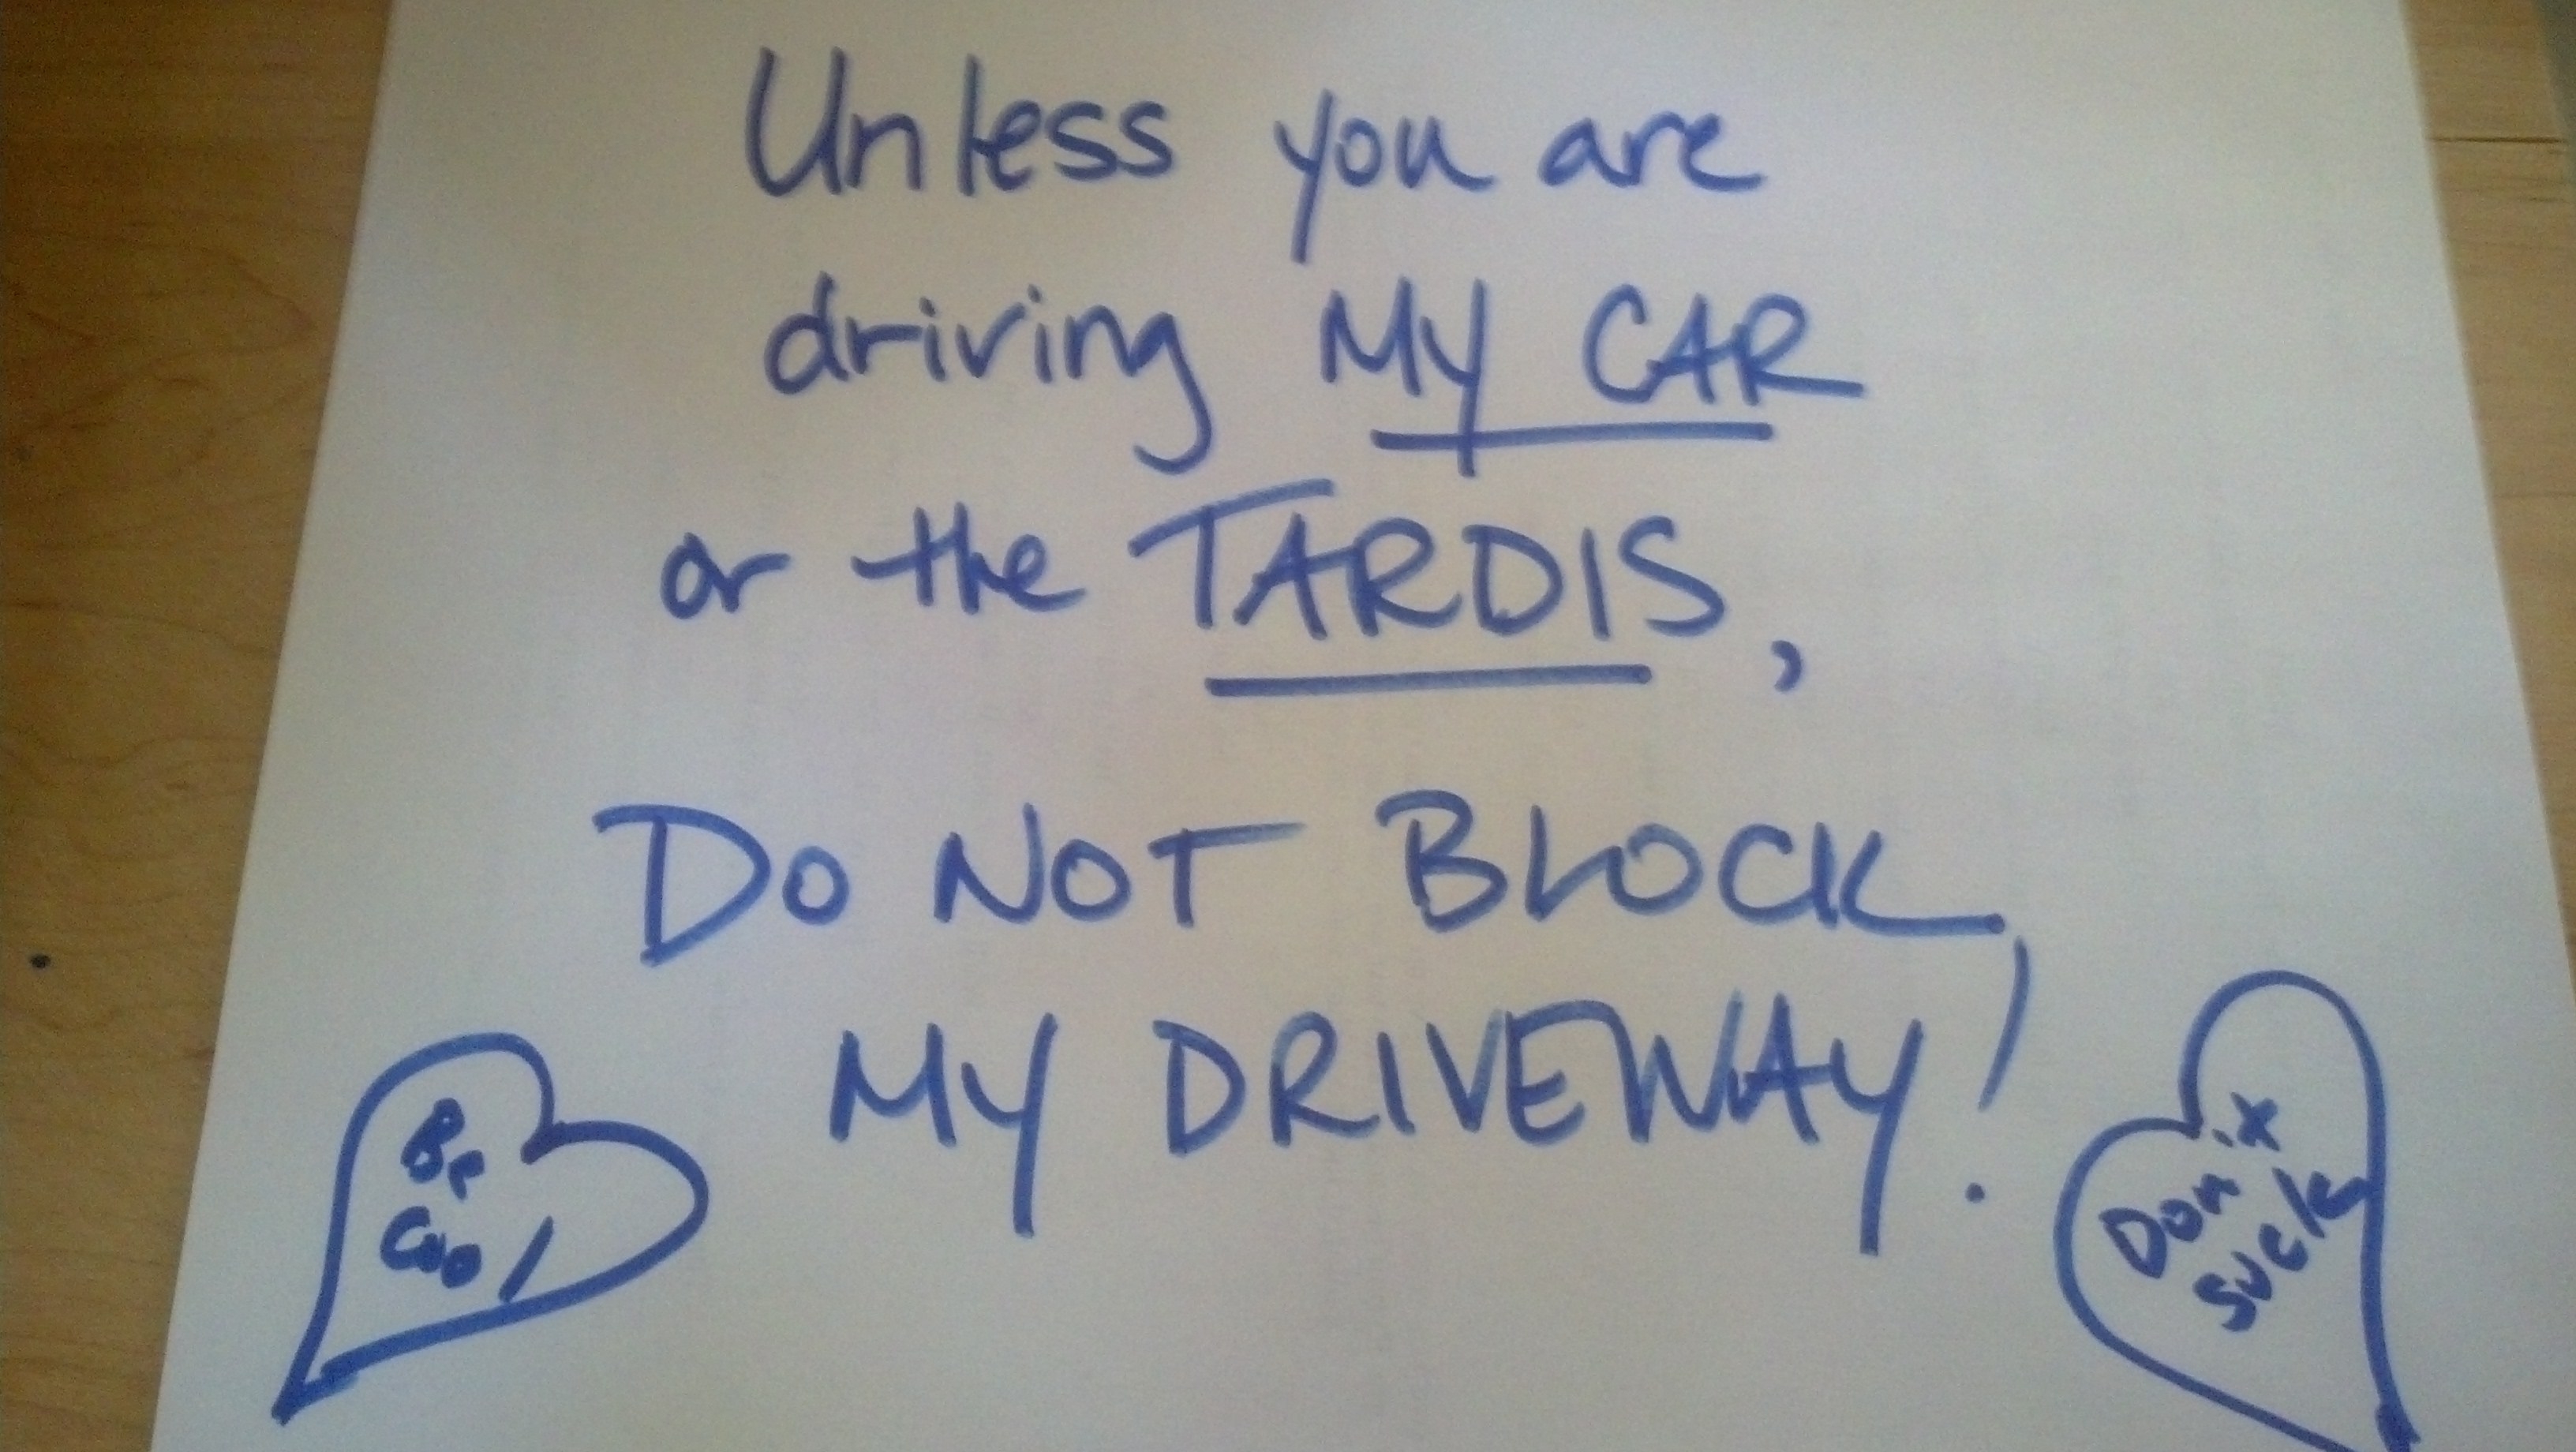 Unless you are
driving MY CAR
or the TARDIS,
DO NOT BLOCK
MY DRIVEWAY!
Be
Cool
Don't
suck